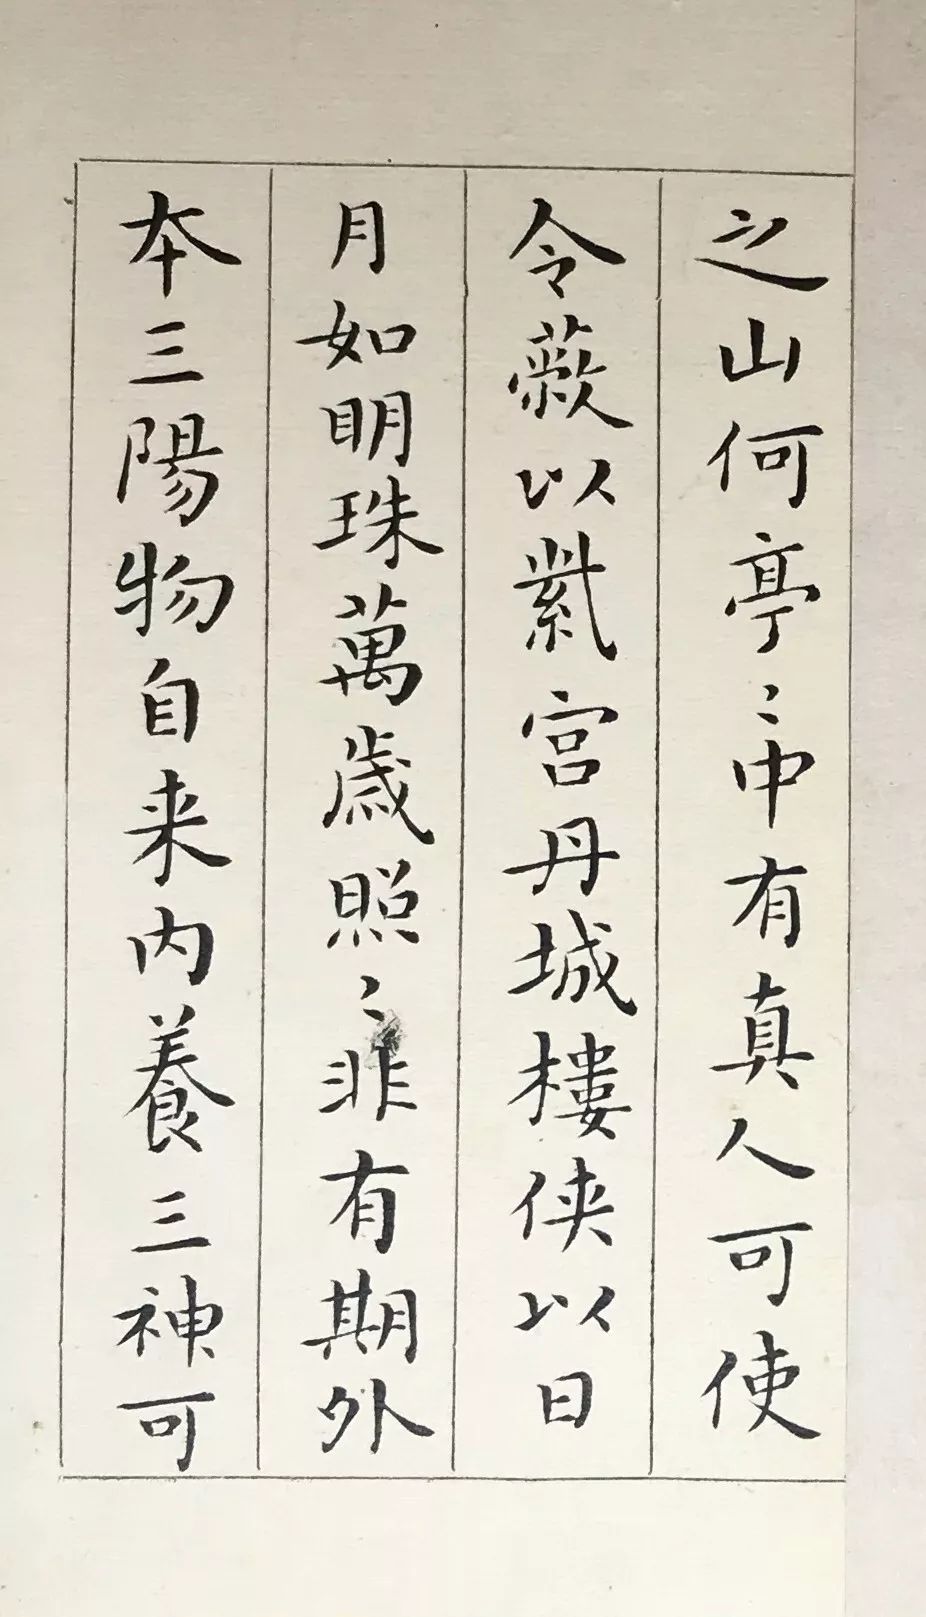 之山何亭〻中有真人可使
令蔱以紫宫丹城樓俠以日
月如明珠萬歲照〻非有期外
本三陽物自来内養三神可